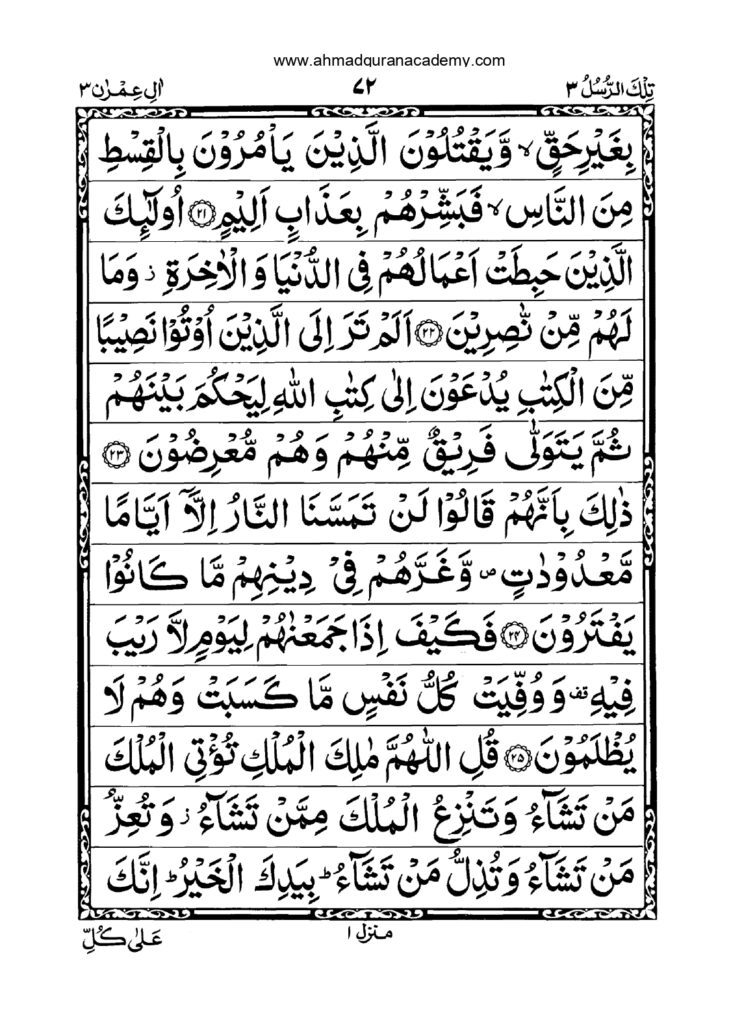 www.ahmadquranacademy.com
تِلْكَ الرُّسُلُ ٣ ٧٢ اٰلِ عِمْرٰن ٣
بِغَيْرِ حَقٍّ ۙ وَّيَقْتُلُوْنَ الَّذِيْنَ يَاْمُرُوْنَ بِالْقِسْطِ
مِنَ النَّاسِ ۙ فَبَشِّرْهُمْ بِعَذَابٍ اَلِيْمٍ ﴿٢١﴾ اُولٰٓئِكَ
الَّذِيْنَ حَبِطَتْ اَعْمَالُهُمْ فِى الدُّنْيَا وَ الْاٰخِرَةِ ز وَمَا
لَهُمْ مِّنْ نّٰصِرِيْنَ ﴿٢٢﴾ اَلَمْ تَرَ اِلَى الَّذِيْنَ اُوْتُوْا نَصِيْبًا
مِّنَ الْكِتٰبِ يُدْعَوْنَ اِلٰى كِتٰبِ اللّٰهِ لِيَحْكُمَ بَيْنَهُمْ
ثُمَّ يَتَوَلّٰى فَرِيْقٌ مِّنْهُمْ وَهُمْ مُّعْرِضُوْنَ ﴿٢٣﴾
ذٰلِكَ بِاَنَّهُمْ قَالُوْا لَنْ تَمَسَّنَا النَّارُ اِلَّاۤ اَيَّامًا
مَّعْدُوْدٰتٍ ص وَّغَرَّهُمْ فِىْ دِيْنِهِمْ مَّا كَانُوْا
يَفْتَرُوْنَ ﴿٢٤﴾ فَكَيْفَ اِذَا جَمَعْنٰهُمْ لِيَوْمٍ لَّا رَيْبَ
فِيْهِ قف وَ وُفِّيَتْ كُلُّ نَفْسٍ مَّا كَسَبَتْ وَهُمْ لَا
يُظْلَمُوْنَ ﴿٢٥﴾ قُلِ اللّٰهُمَّ مٰلِكَ الْمُلْكِ تُؤْتِى الْمُلْكَ
مَنْ تَشَآءُ وَتَنْزِعُ الْمُلْكَ مِمَّنْ تَشَآءُ ز وَتُعِزُّ
مَنْ تَشَآءُ وَتُذِلُّ مَنْ تَشَآءُ ؕ بِيَدِكَ الْخَيْرُ ؕ اِنَّكَ
منزل ١
عَلٰى كُلِّ